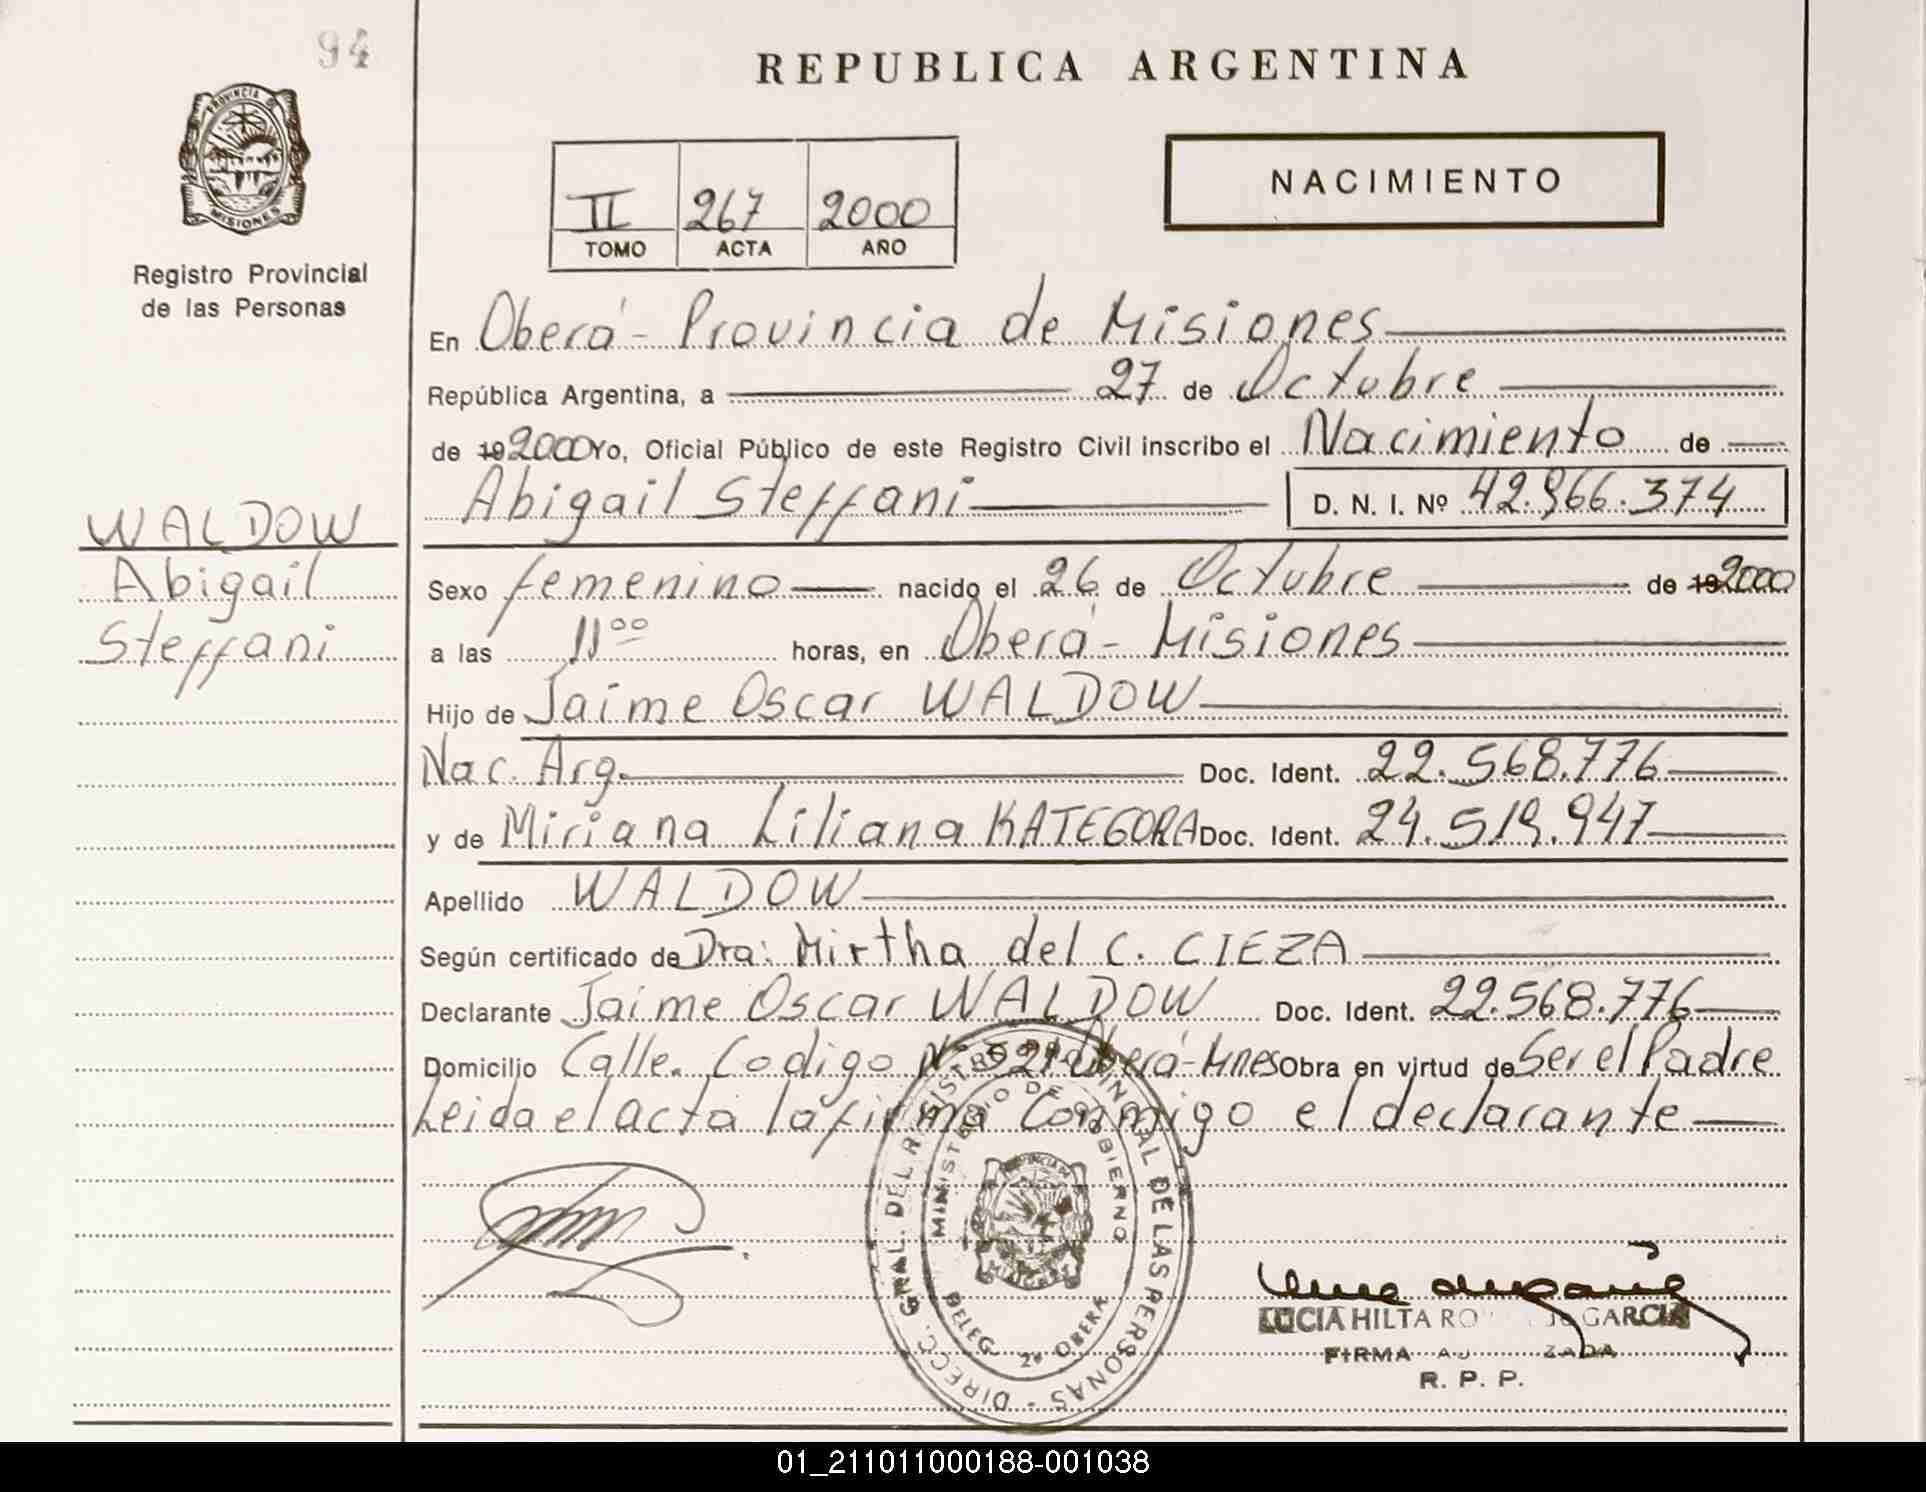 94
REPUBLICA ARGENTINA
PROVINCIA DE
MISIONES
Registro Provincial
de las Personas
II 267 2000
TOMO ACTA AÑO
NACIMIENTO
En Oberá - Provincia de Misiones
República Argentina, a 27 de Octubre
de 19 2000 Yo, Oficial Público de este Registro Civil inscribo el Nacimiento de
Abigail Steffani D. N. I. Nº 42.966.374
WALDOW
Abigail
Steffani
Sexo femenino nacido el 26 de Octubre de 19 2000
a las 11 00 horas, en Oberá - Misiones
Hijo de Jaime Oscar WALDOW
Nac. Arg. Doc. Ident. 22.568.776
y de Miriana Liliana KATEGORA Doc. Ident. 24.519.947
Apellido WALDOW
Según certificado de Dra: Mirtha del C. CIEZA
Declarante Jaime Oscar WALDOW Doc. Ident. 22.568.776
Domicilio Calle. Codigo Nº 521 Oberá - Mnes Obra en virtud de Ser el Padre
Leida el acta la firma Conmigo el declarante
DIRECC. GRAL. DEL REGISTRO PROVINCIAL DE LAS PERSONAS -
MINISTERIO DE GOBIERNO
DELEG. 2ª OBERA
LUCIA HILTA GARCIA
FIRMA
R. P. P.
01_211011000188-001038